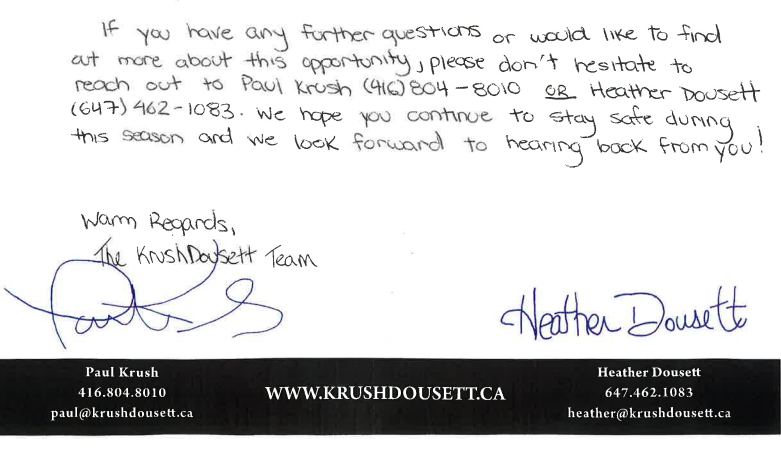 If you have any further questions or would like to find
out more about this opportunity, please don't hesitate to
reach out to Paul Krush (416) 804-8010 OR Heather Dousett
(647) 462-1083. We hope you continue to stay safe during
this season and we look forward to hearing back from you!
Warm Regards,
The KrushDousett Team
Heather Dousett
Paul Krush
416.804.8010
paul@krushdousett.ca
WWW.KRUSHDOUSETT.CA
Heather Dousett
647.462.1083
heather@krushdousett.ca